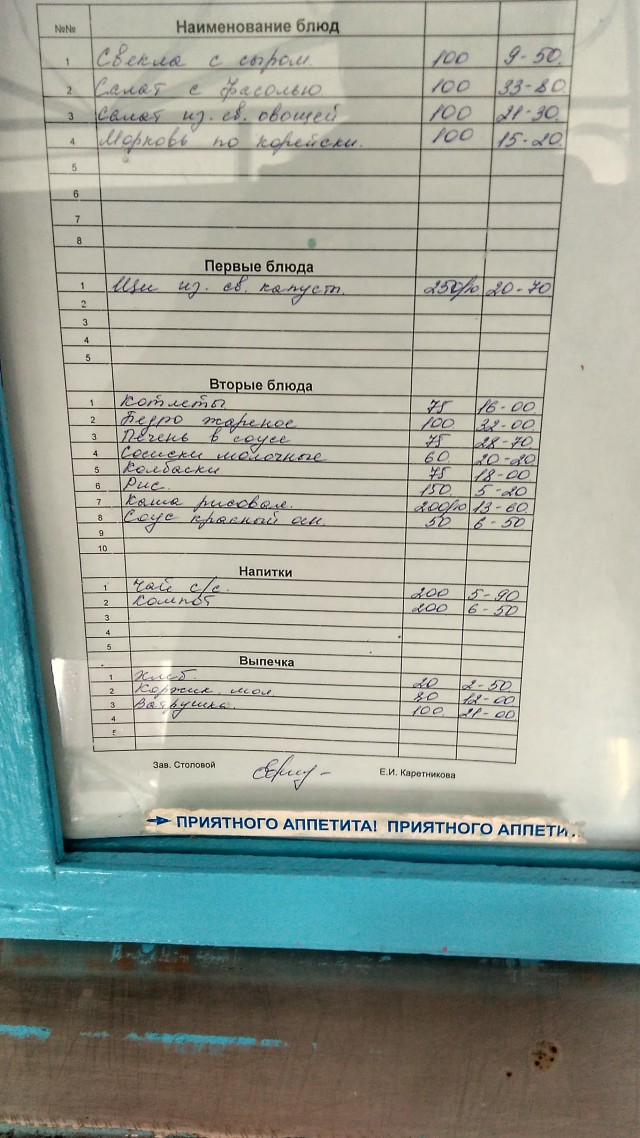 №№ Наименование блюд
1 Свекла с сыром. 100 9-50.
2 Салат с фасолью 100 33-80
3 Салат из. св. овощей 100 21-30.
4 Морковь по корейски. 100 15-20.
5
6
7
8
Первые блюда
1 Щи из. св. капусты. 250/10 20-70
2
3
4
5
Вторые блюда
1 Котлеты 75 16-00
2 Бедро жареное 100 32-00
3 Печень в соусе 75 28-70
4 Сосиски молочные 60 20-20
5 Колбаски 75 18-00
6 Рис. 150 5-20
7 Каша рисовая. 200/10 13-60
8 Соус красный осн. 50 6-50
9
10
Напитки
1 Чай с/с. 200 5-90
2 Компот 200 6-50
3
4
5
Выпечка
1 Хлеб. 20 2-50
2 Коржик мол 80 12-00
3 Ватрушка. 100 21-00
4
5
Зав. Столовой Е.И. Каретникова
ПРИЯТНОГО АППЕТИТА! ПРИЯТНОГО АППЕТИ